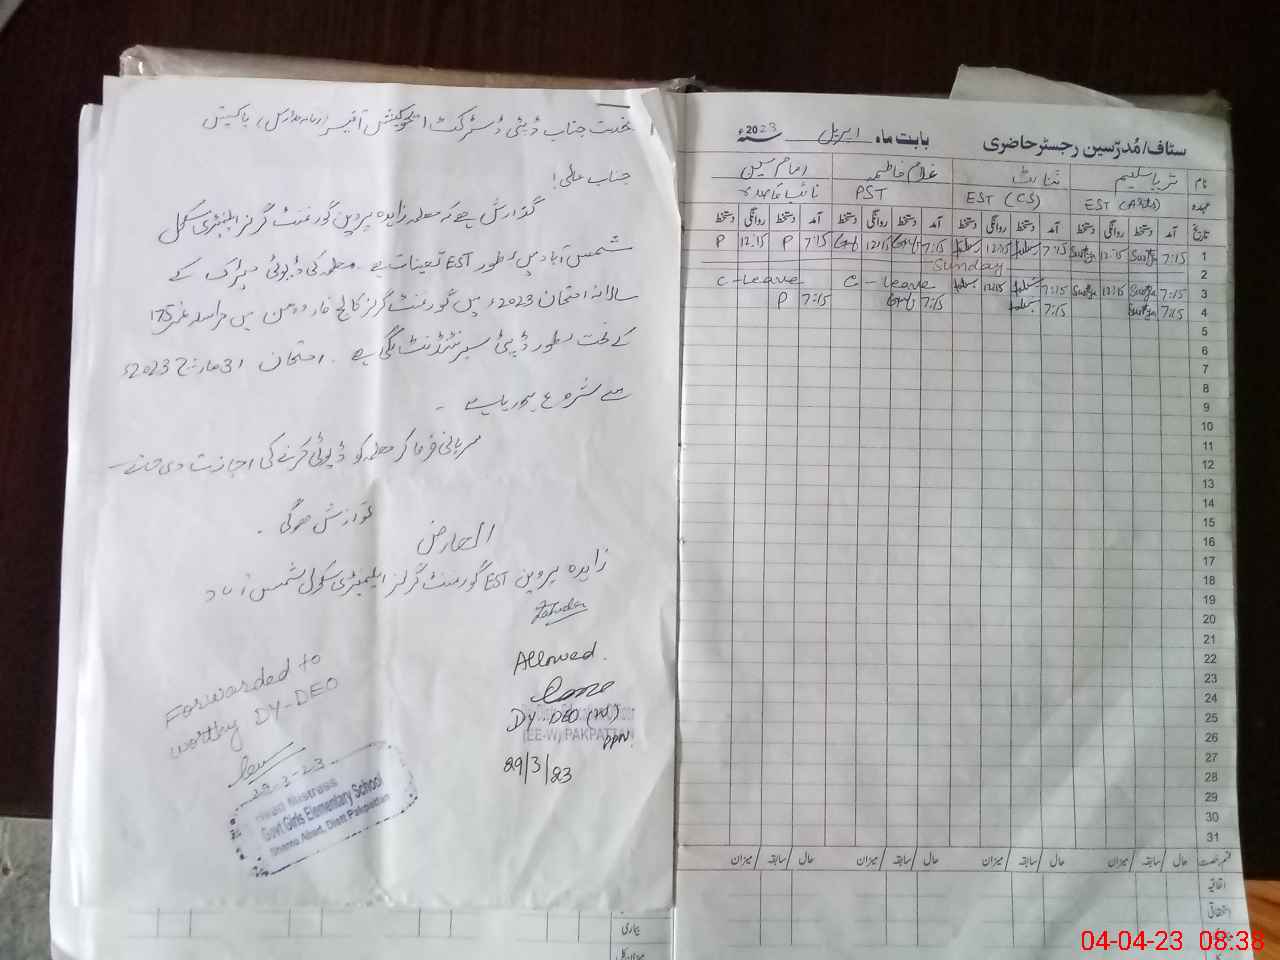 بخدمت جناب ڈپٹی ڈسٹرکٹ ایجوکیشن آفیسر (زنانہ مدارس) پاکپتن
جناب عالی!
گذارش ہے کہ معلمہ زاہدہ پروین گورنمنٹ گرلز ایلیمنٹری سکول
شمس آباد میں بطور EST تعینات ہے۔ معلمہ کی ڈیوٹی میٹرک کے
سالانہ امتحان 2023ء میں گورنمنٹ گرلز کالج میں مراسلہ نمبر 175
کے تحت بطور ڈپٹی سپرنٹنڈنٹ لگی ہے۔ امتحان 31 مارچ 2023ء
سے شروع ہو رہا ہے۔
مہربانی فرما کر معلمہ کو ڈیوٹی کرنے کی اجازت دی جائے
نوازش ہوگی۔
العارض
زاہدہ پروین EST گورنمنٹ گرلز ایلیمنٹری سکول شمس آباد
Zahida
Allowed.
DY-DEO (W)
PPN.
(EE-W) PAKPATTAN
29/3/23
Forwarded to
worthy DY-DEO
29-3-23
Head Mistress
Govt. Girls Elementary School
Shams Abad, Distt Pakpattan
سٹاف/مُدرّسین رجسٹر حاضری بابت ماہ اپریل سنہ 2023ء
نام ثریا سلیم غلام فاطمہ
عہدہ EST (Arts) EST (CS) PST نائب قاصد
تاریخ آمد دستخط روانگی دستخط آمد دستخط روانگی دستخط آمد دستخط روانگی دستخط آمد دستخط روانگی دستخط
1 7:15 12:15 7:15 12:15 7:15 12:15 7:15 P 12:15 P
2 Sunday
3 7:15 12:15 7:15 12:15 C-Leave C-Leave
4 7:15 7:15 7:15 7:15 P
5
6
7
8
9
10
11
12
13
14
15
16
17
18
19
20
21
22
23
24
25
26
27
28
29
30
31
قسم رخصت حال سابقہ/میزان حال سابقہ/میزان حال سابقہ/میزان حال سابقہ/میزان
اتفاقیہ
استحقاقی
بیماری
04-04-23 08:38